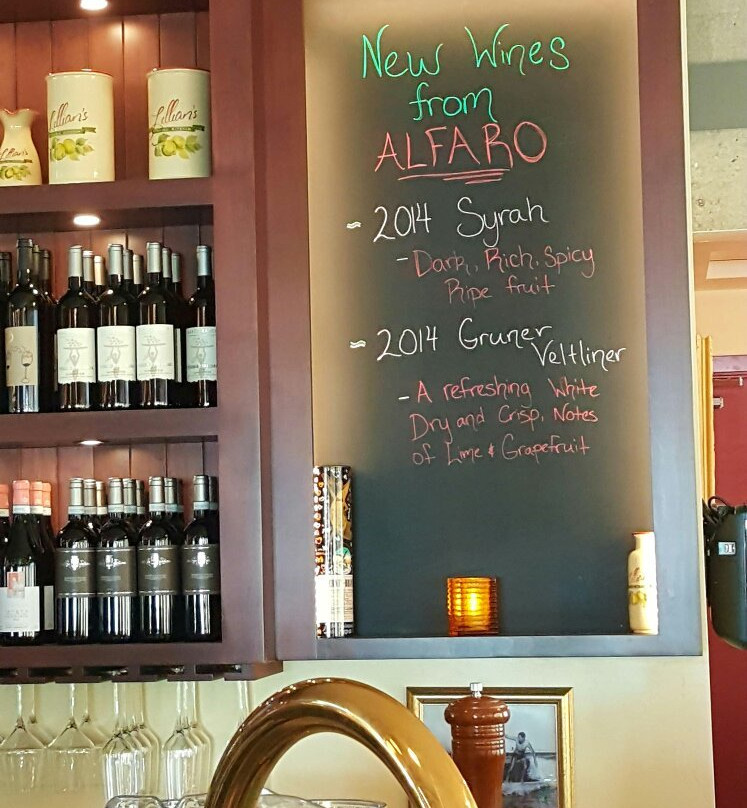 New Wines
from
ALFARO
~ 2014 Syrah
- Dark, Rich, Spicy
Ripe fruit
~ 2014 Gruner
Veltliner
- A refreshing White
Dry and Crisp, Notes
of Lime & Grapefruit
Lillian's
Lillian's
Lillian's